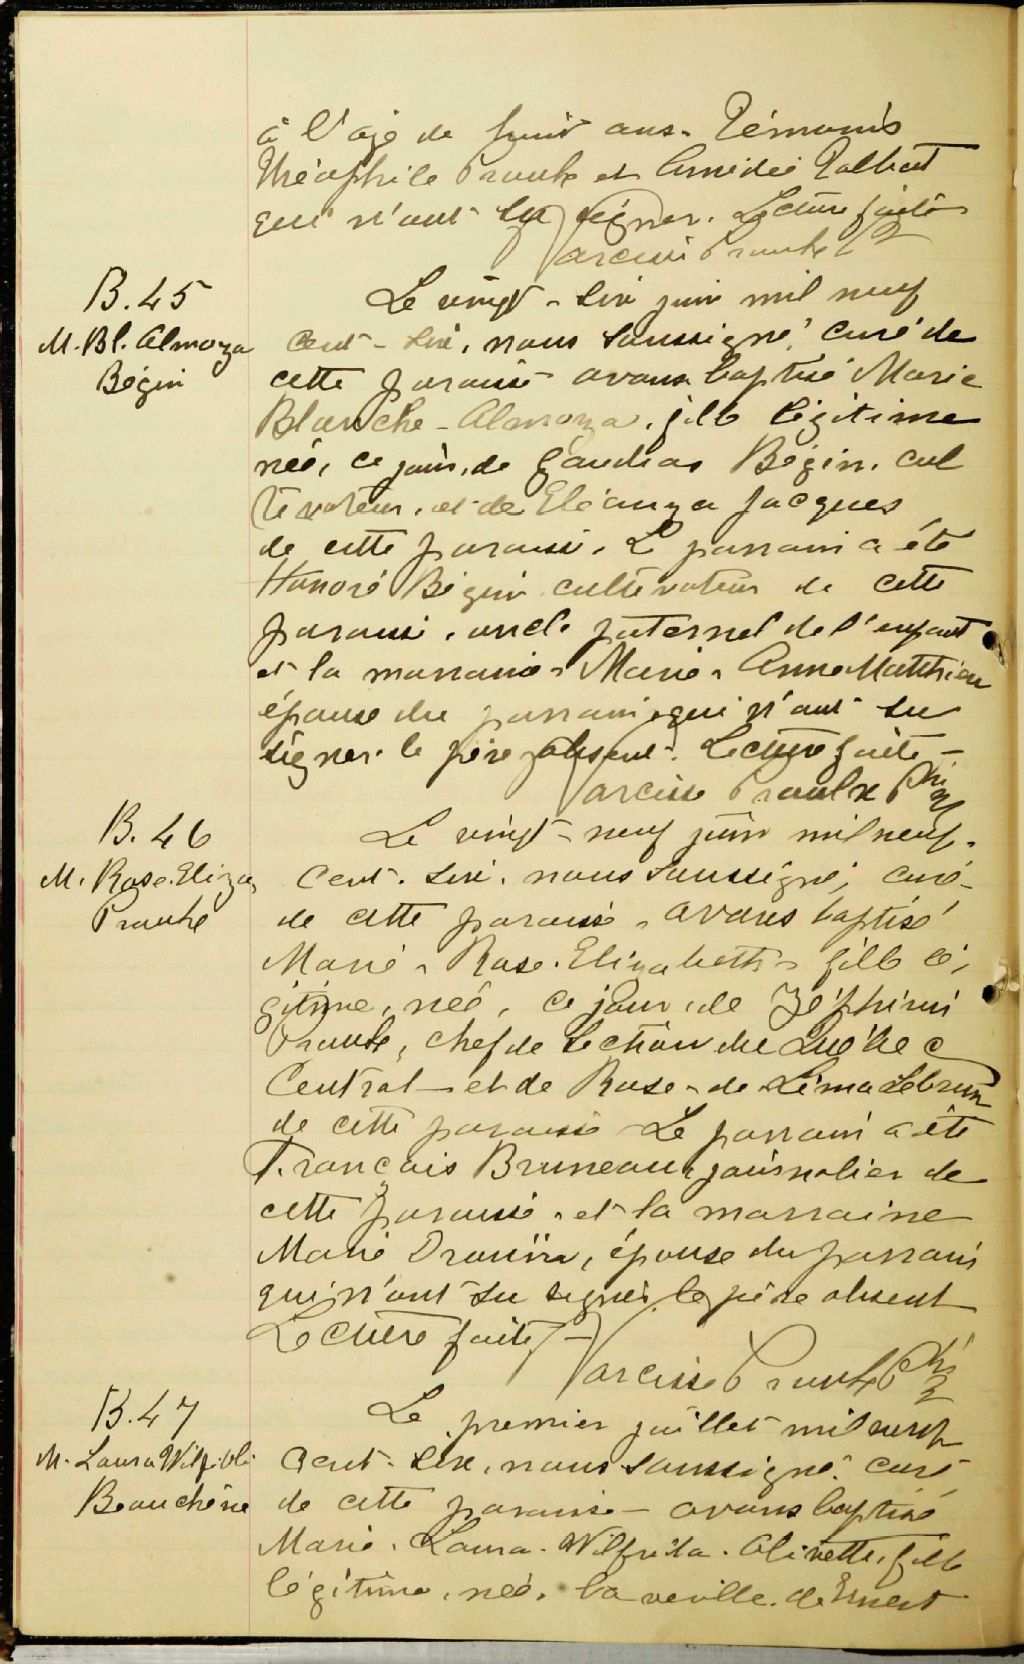 à l'age de huit ans. Témoins
Théophile Proulx et Amédée Talbot
qui n'ont su signer. Lecture faite
Narcisse Proulx Ptre
B. 45
M. Bl. Almoza
Bégin
Le vingt-six juin mil neuf
cent-six, nous soussigné, curé de
cette paroisse avons baptisé Marie
Blanche-Almoza, fille légitime
née, ce jour, de Gaudias Bégin, cul
tivateur, et de Eléanza Jacques
de cette paroisse. Le parrain a été
Honoré Bégin cultivateur de cette
paroisse, oncle paternel de l'enfant
et la marraine, Marie, Anne Matthieu
épouse du parrain, qui n'ont su
signer. le père absent. Lecture faite -
Narcisse Proulx Ptre
B. 46
M. Rose. Eliza
Proulx
Le vingt-neuf juin mil neuf.
cent. six. nous soussigné, curé
de cette paroisse, avons baptisé
Marie, Rose. Elizabeth, fille lé,
gitime, née, ce jour, de Zéphirin
Proulx, chef de section du Québec
Central et de Rose-de-Lima Lebrun
de cette paroisse Le parrain a été
François Bruneau, journalier de
cette paroisse, et la marraine
Marie Drouin, épouse du parrain
qui n'ont su signer. le père absent
Lecture faite -
Narcisse Proulx Ptre
B. 47
M. Laura
Beauchêne
Le premier juillet mil neuf
cent-six, nous soussigné, curé
de cette paroisse avons baptisé
Marie. Laura. Wilfrida. Alivette, fille
légitime, née, la veille, de Ernest